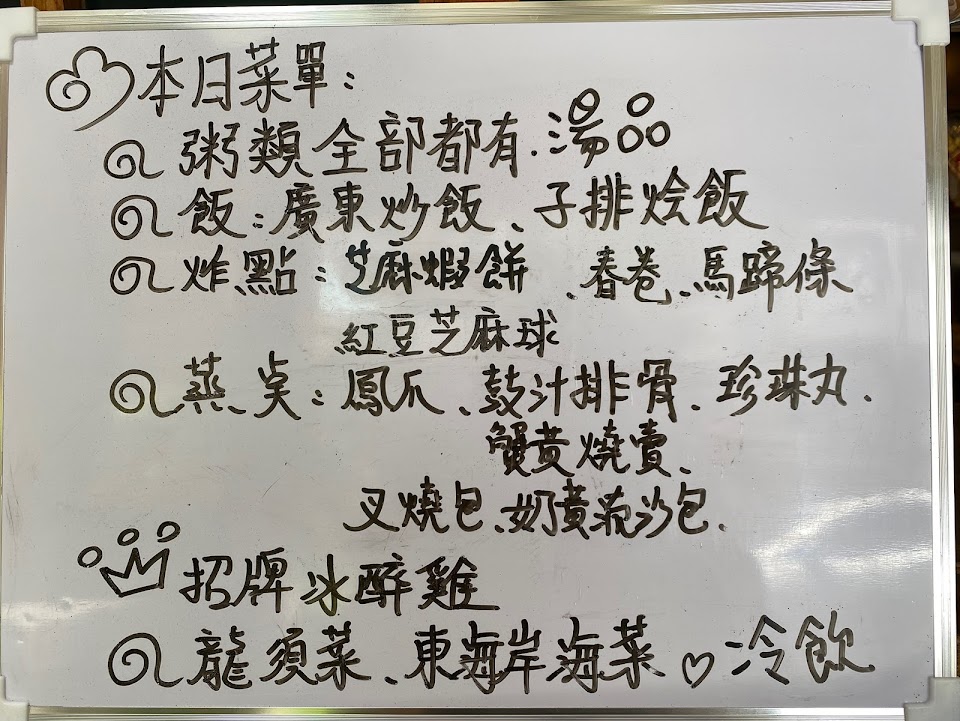 本日菜單：
粥類全部都有.湯品
飯：廣東炒飯、子排烩飯
炸點：芝麻蝦餅、春卷、馬蹄條
紅豆芝麻球
蒸点：鳳爪、鼓汁排骨、珍珠丸、
蟹黃燒賣、
叉燒包、奶黃流沙包、
招牌冰醉雞
龍須菜、東海岸海菜♡冷飲